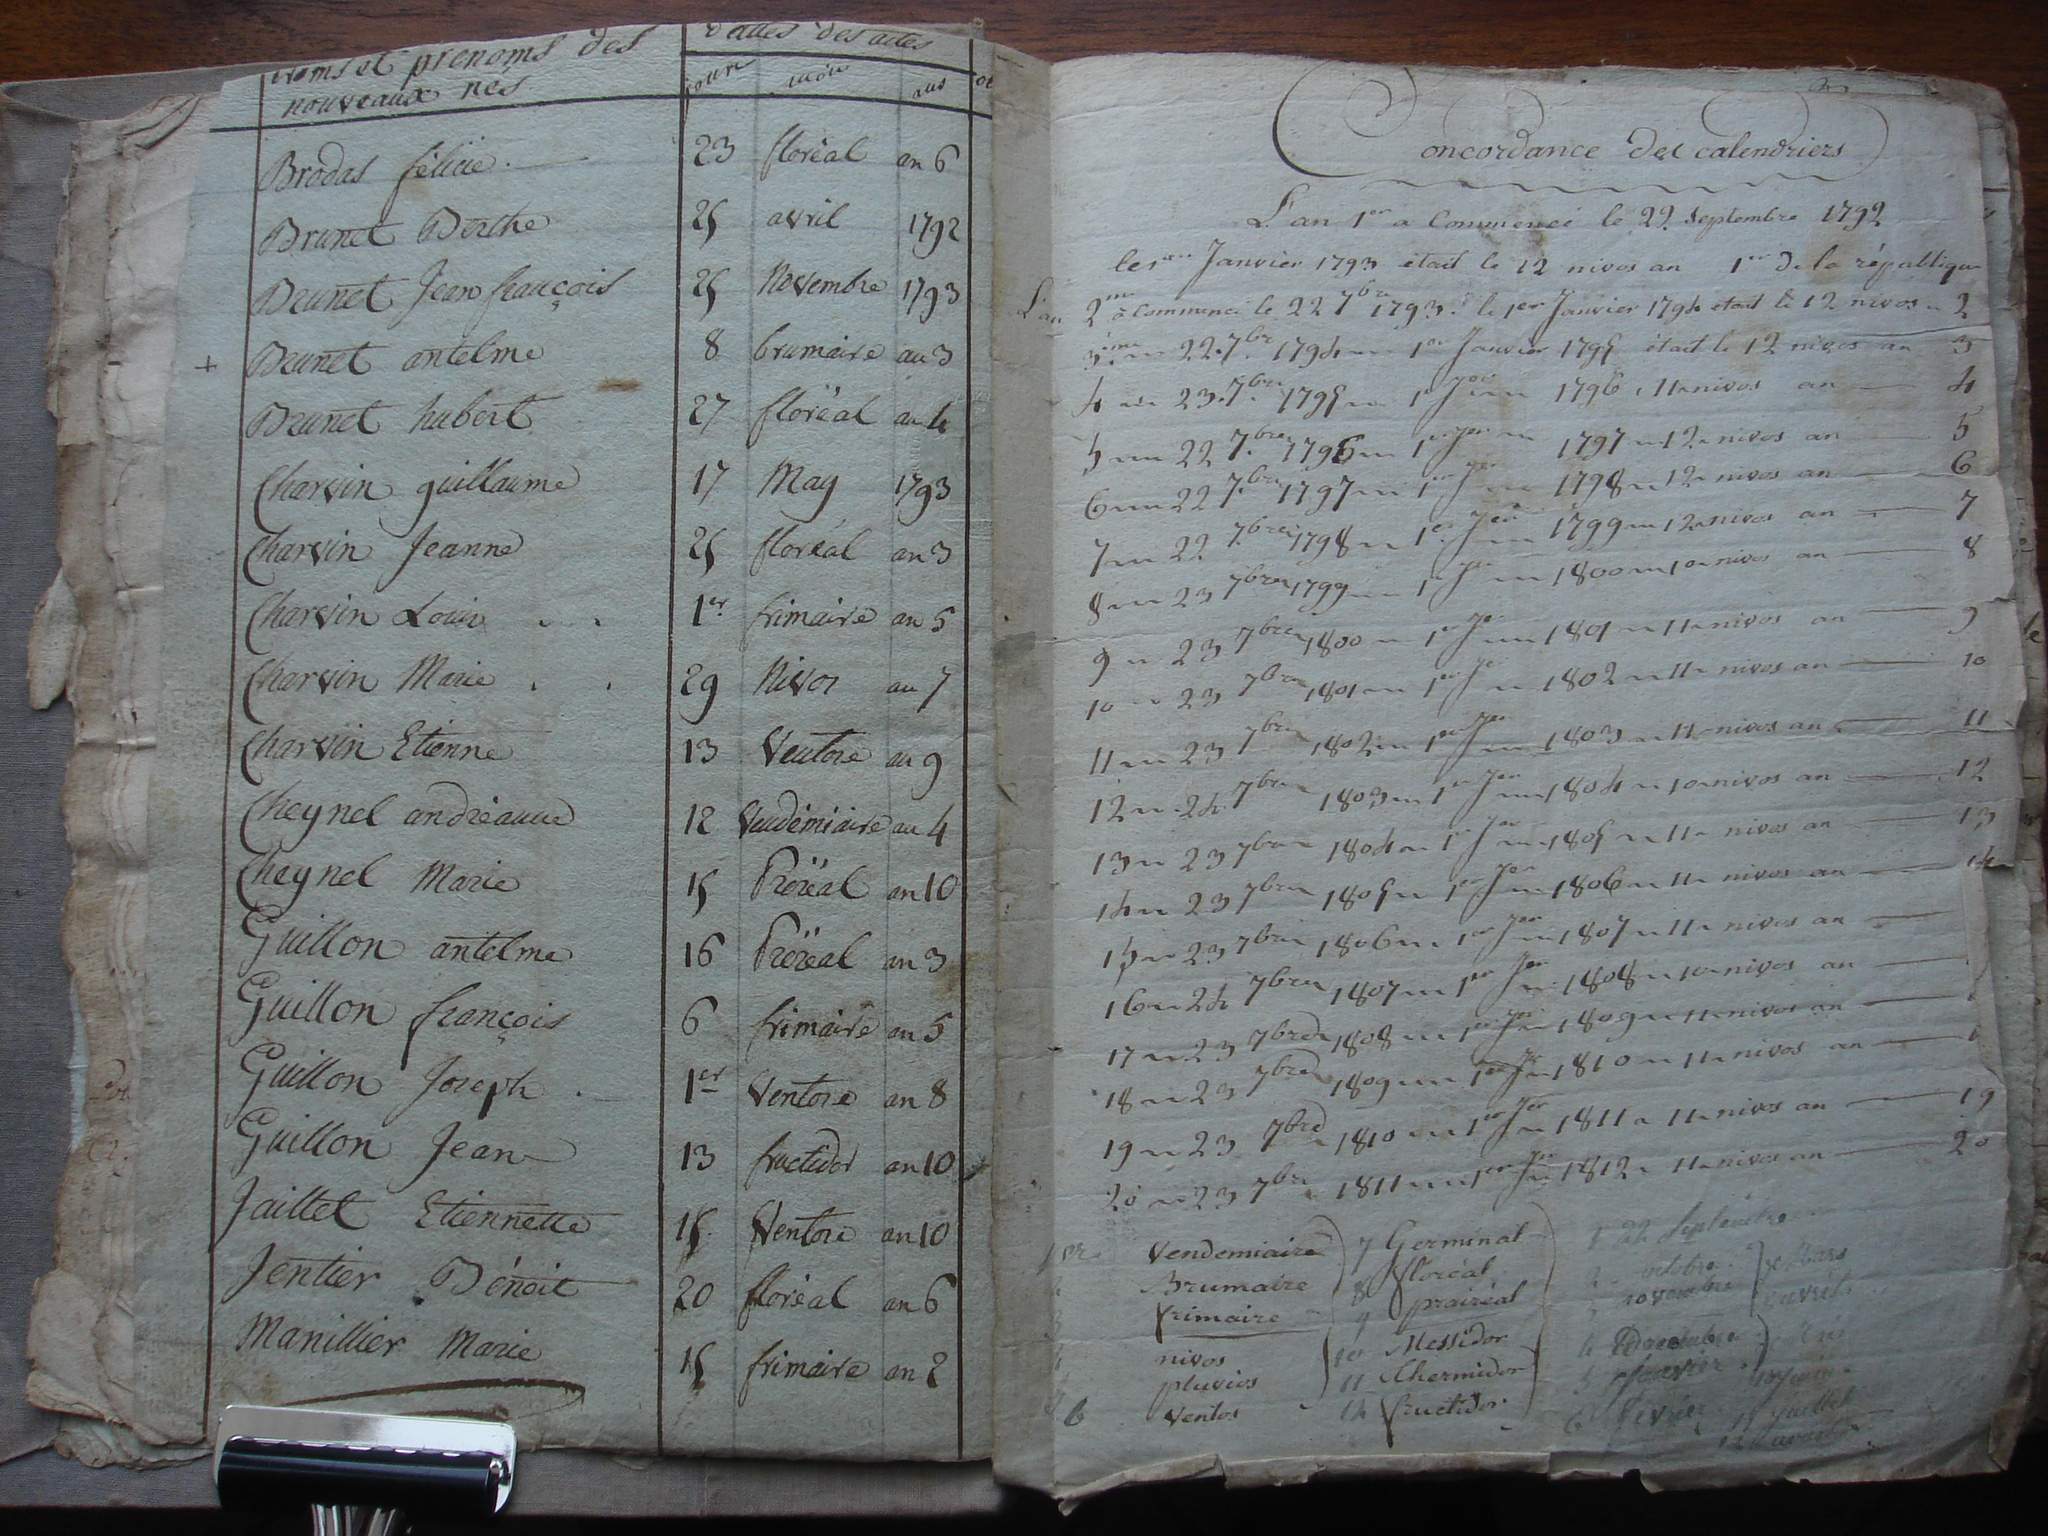 noms et prenoms des
nouveaux nés
dattes des actes
jours mois ans
Brodas félicie 23 floréal an 6
Brunet Berthe 25 avril 1792
Brunet Jean françois 25 Novembre 1793
+ Brunet antelme 8 brumaire an 3
Brunet hubert 27 floréal an 4
Charvin guillaume 17 May 1793
Charvin Jeanne 25 floréal an 3
Charvin Louis 1er frimaire an 5
Charvin Marie 29 Nivos an 7
Charvin Etienne 13 Ventose an 9
Cheynel andréanne 12 Vendémiaire an 4
Cheynel Marie 15 Préréal an 10
Guillon antelme 16 Préréal an 3
Guillon françois 6 frimaire an 5
Guillon Joseph 1er Ventose an 8
Guillon Jean 13 fructidor an 10
Jaillet Etiennette 15 Ventose an 10
Jentier Bénoit 20 floréal an 6
Manillier Marie 15 frimaire an 2
Concordance des calendriers
L'an 1er a Commencé le 22 Septembre 1792
le 1er Janvier 1793 était le 12 nivos an 1er de la république
L'an 2me a Commencé le 22 7bre 1793. le 1er Janvier 1794 etait le 12 nivos 2
3eme 22. 7bre 1794 1er Janvier 1795 était le 12 nivos an 3
4 23. 7bre 1795 1er Jer 1796 11 nivos an 4
5 22 7bre 1796 1er Jer 1797 12 nivos an 5
6 22 7bre 1797 1er Jer 1798 12 nivos an 6
7 22 7bre 1798 1er Jer 1799 12 nivos an 7
8 23 7bre 1799 1er Jer 1800 10 nivos an 8
9 23 7bre 1800 1er Jer 1801 11 nivos an 9
10 23 7bre 1801 1er Jer 1802 11 nivos an 10
11 23 7bre 1802 1er Jer 1803 11 nivos an 11
12 24 7bre 1803 1er Jer 1804 10 nivos an 12
13 23 7bre 1804 1er Jer 1805 11 nivos an 13
14 23 7bre 1805 1er Jer 1806 11 nivos an 14
15 23 7bre 1806 1er Jer 1807 11 nivos an
16 24 7bre 1807 1er Jer 1808 10 nivos an
17 23 7bre 1808 1er Jer 1809 11 nivos an
18 23 7bre 1809 1er Jer 1810 11 nivos an
19 23 7bre 1810 1er Jer 1811 11 nivos an 19
20 23 7bre 1811 1er Jer 1812 11 nivos an 20
1er Vendemiaire 7 Germinal 1 22 Septembre
2 Brumaire 8 floréal 2 octobre Mars
3 frimaire 9 prairéal novembre avril
4 nivos 10 Messidor 4 Decembre
pluvios 11 thermidor 5 Janvier
6 ventos 12 fructidor 6 Fevrier 11 Juillet